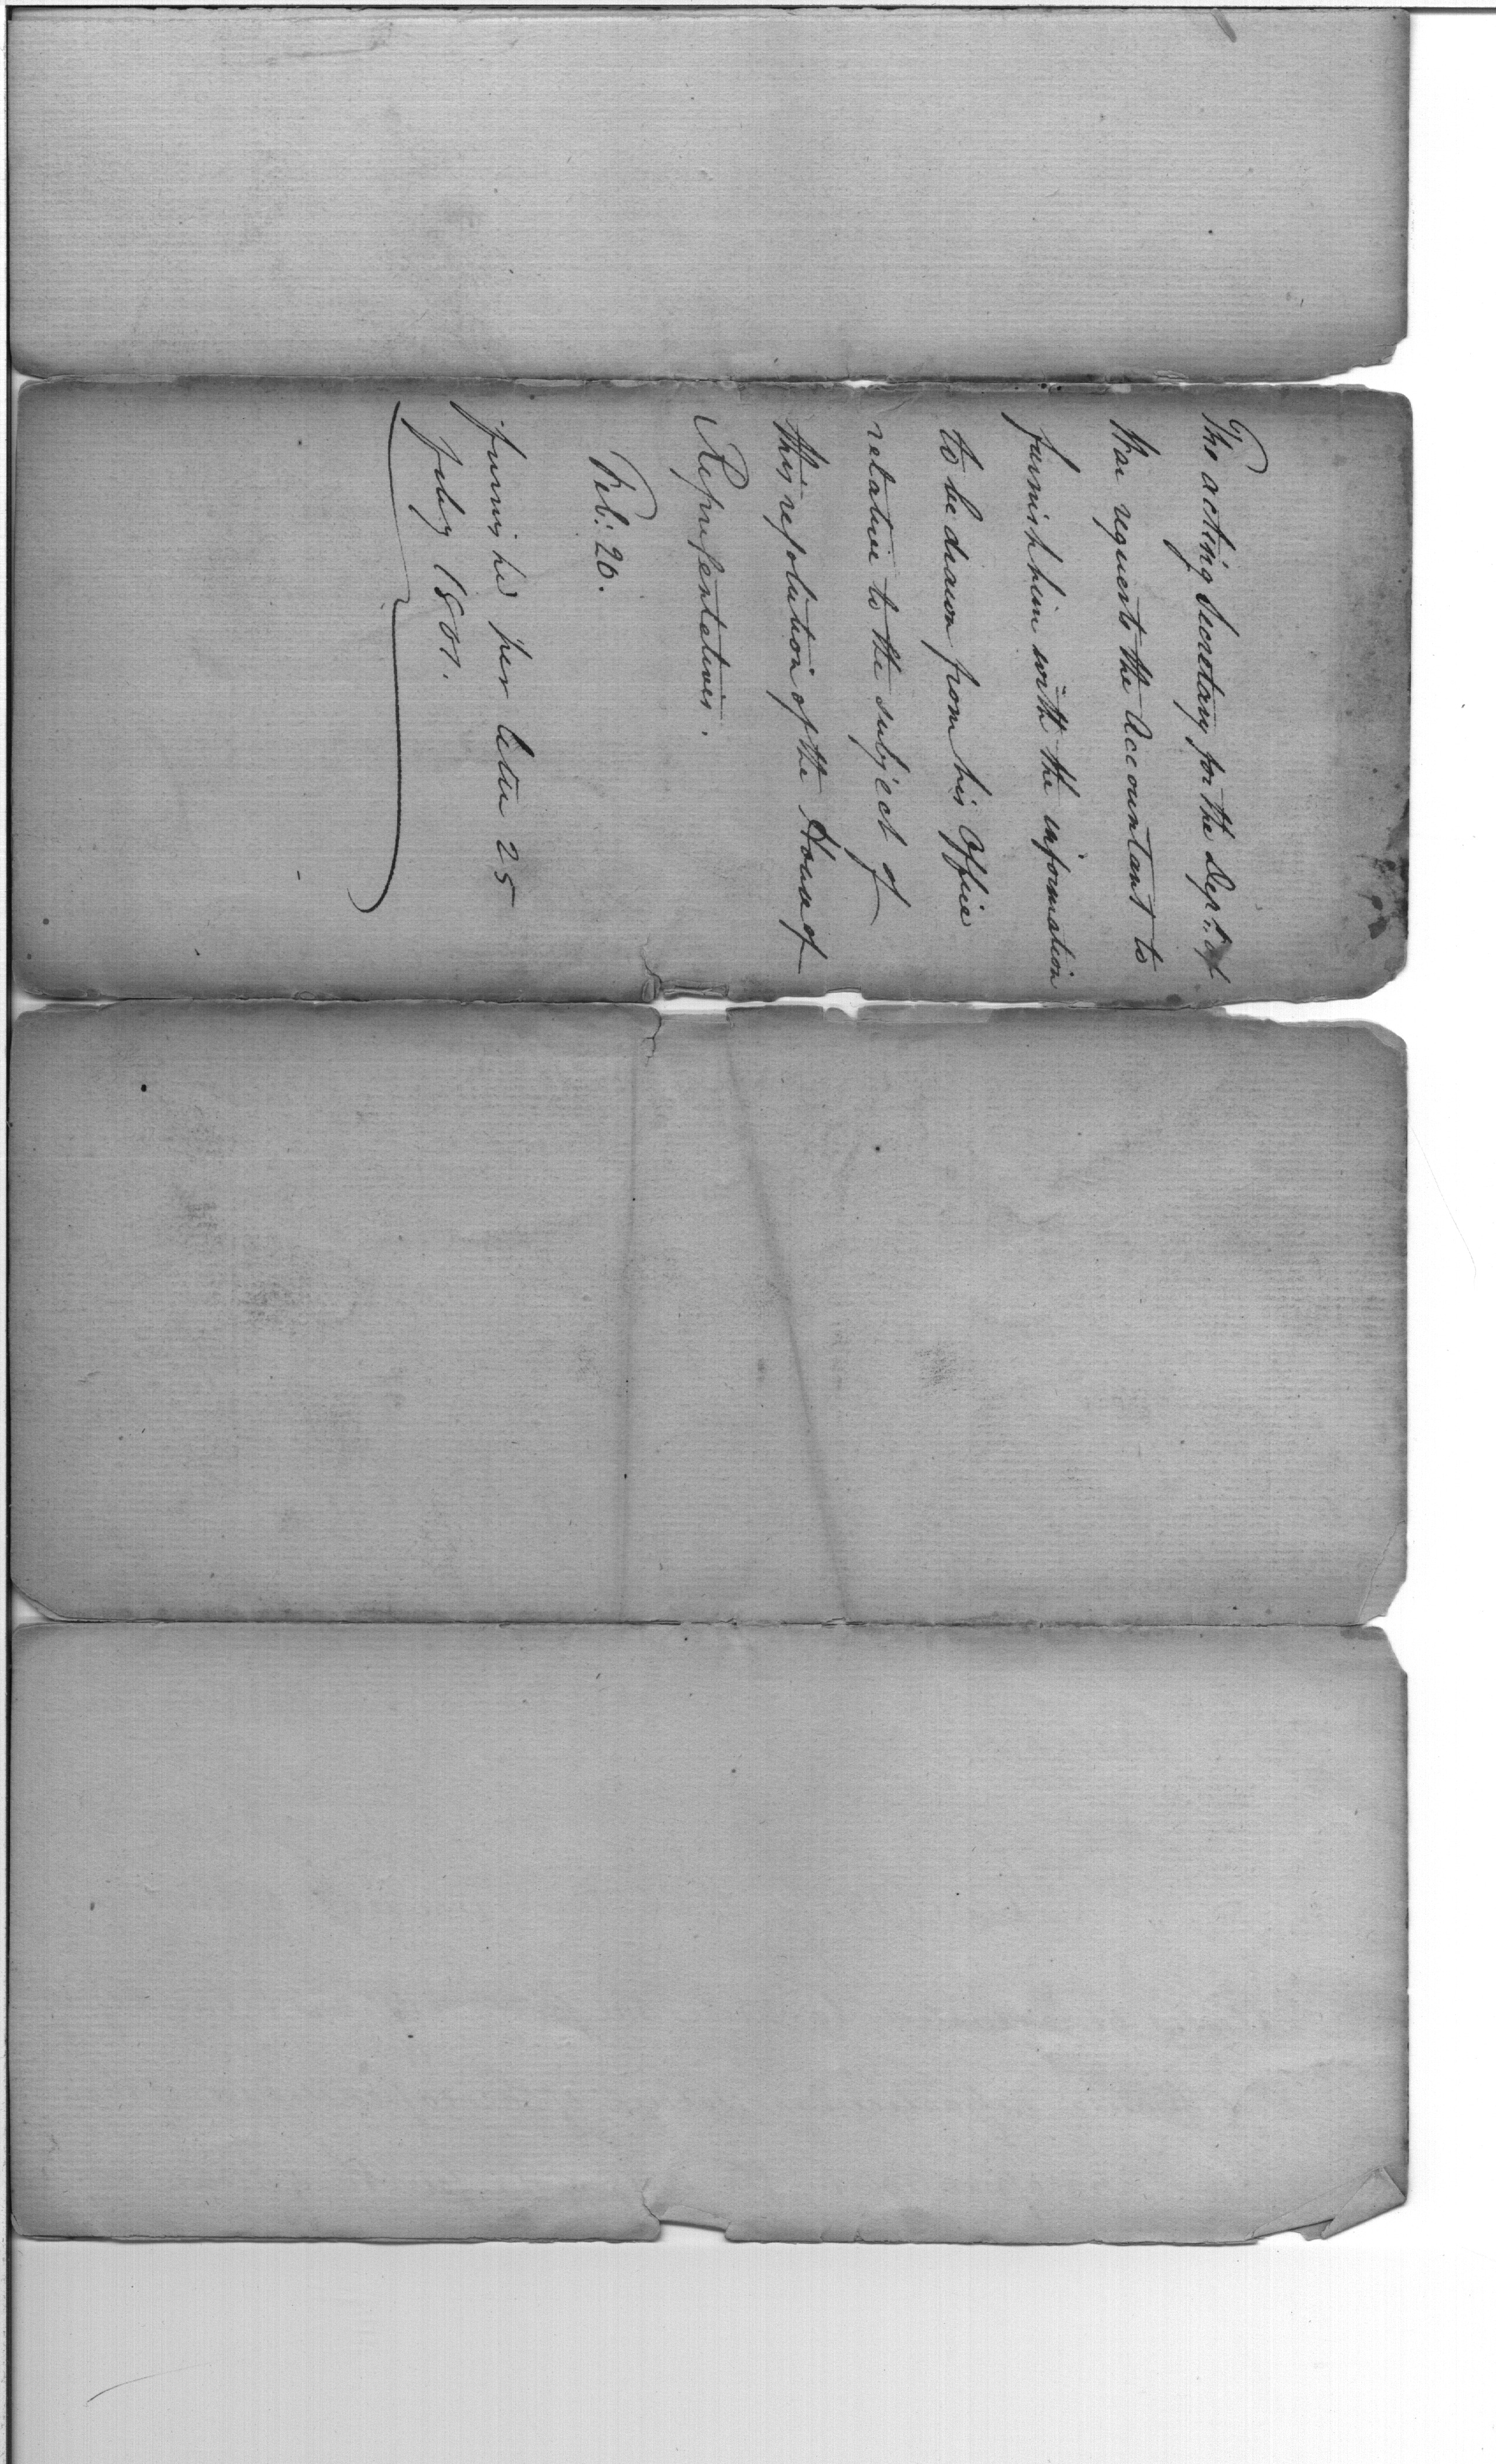 The acting Secretary for the Dept. of
War requests the Accountant to
furnish him with the information
to be drawn from his Office
relative to the subject of
this resolution of the House of
Representatives.
Feb: 20.
furnished per letter 25
Feby 1801.